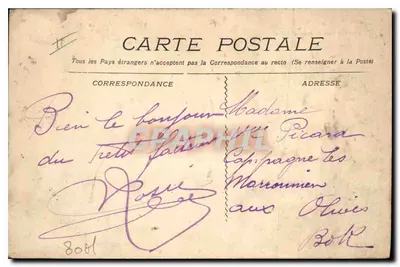 CARTE POSTALE
Tous les Pays étrangers n'acceptent pas la Correspondance au recto (Se renseigner à la Poste)
CORRESPONDANCE
ADRESSE
Bien le bonjour
du petit facteur
Madame
Picard
Campagne les
Marronnien
aux Olives
8081